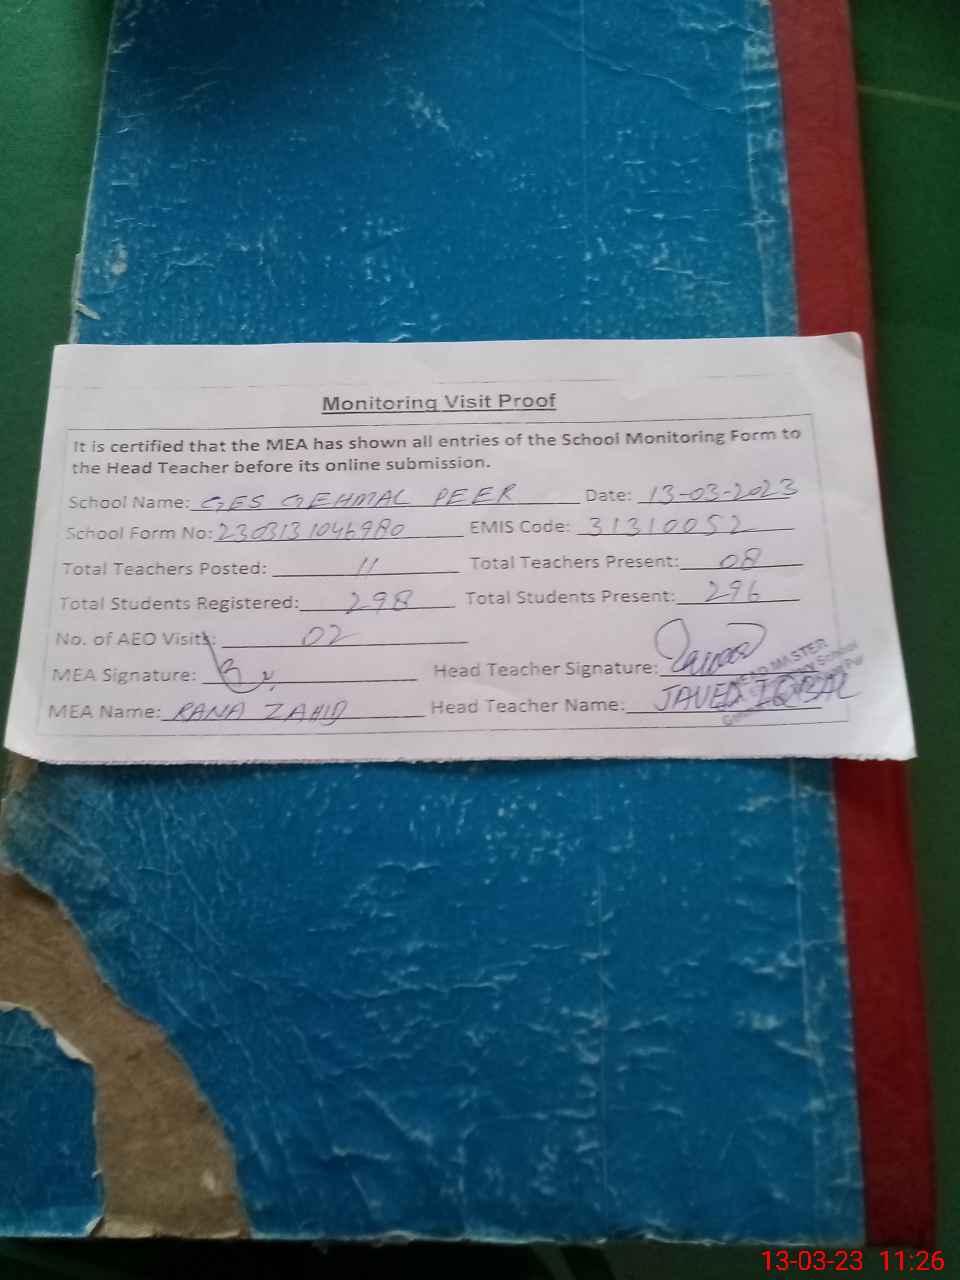 Monitoring Visit Proof
It is certified that the MEA has shown all entries of the School Monitoring Form to
the Head Teacher before its online submission.
School Name: GES GEHMAL PEER Date: 13-03-2023
School Form No: EMIS Code: 31310052
Total Teachers Posted: 11 Total Teachers Present: 08
Total Students Registered: 298 Total Students Present: 296
No. of AEO Visits: 02
MEA Signature: Head Teacher Signature:
HEAD MASTER
School
MEA Name: RANA ZAHID Head Teacher Name: JAVED IQBAL
13-03-23 11:26